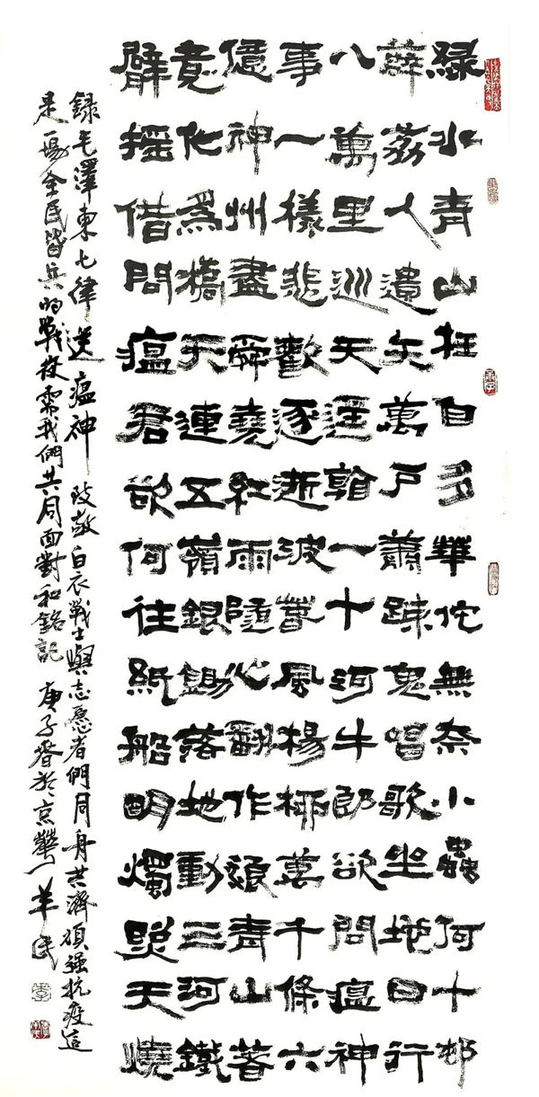 綠水青山枉自多華佗無奈小蟲何千邨
薜荔人遺矢萬戶蕭踈鬼唱歌坐地日行
八萬里巡天遥看一千河牛郎欲問瘟神
事一樣悲歡逐逝波春風楊柳萬千條六
億神州盡舜堯紅雨隨心翻作浪青山著
意化為橋天連五嶺銀鋤落地動三河鐵
臂搖借問瘟君欲何往紙船明燭照天燒
録毛澤東七律送瘟神 致敬白衣戰士與志愿者們同舟共濟頑强抗疫這
是一場全民皆兵的戰役需我們共同面對和銘記 庚子春於京華